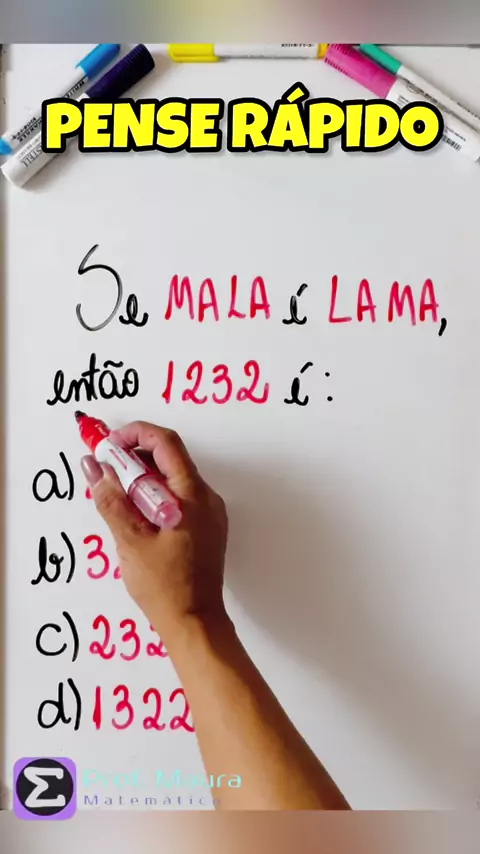 PENSE RÁPIDO
Se MALA é LAMA,
então 1232 é:
a)
b) 3
c) 232
d) 1322
Prof. Maura
Matemática